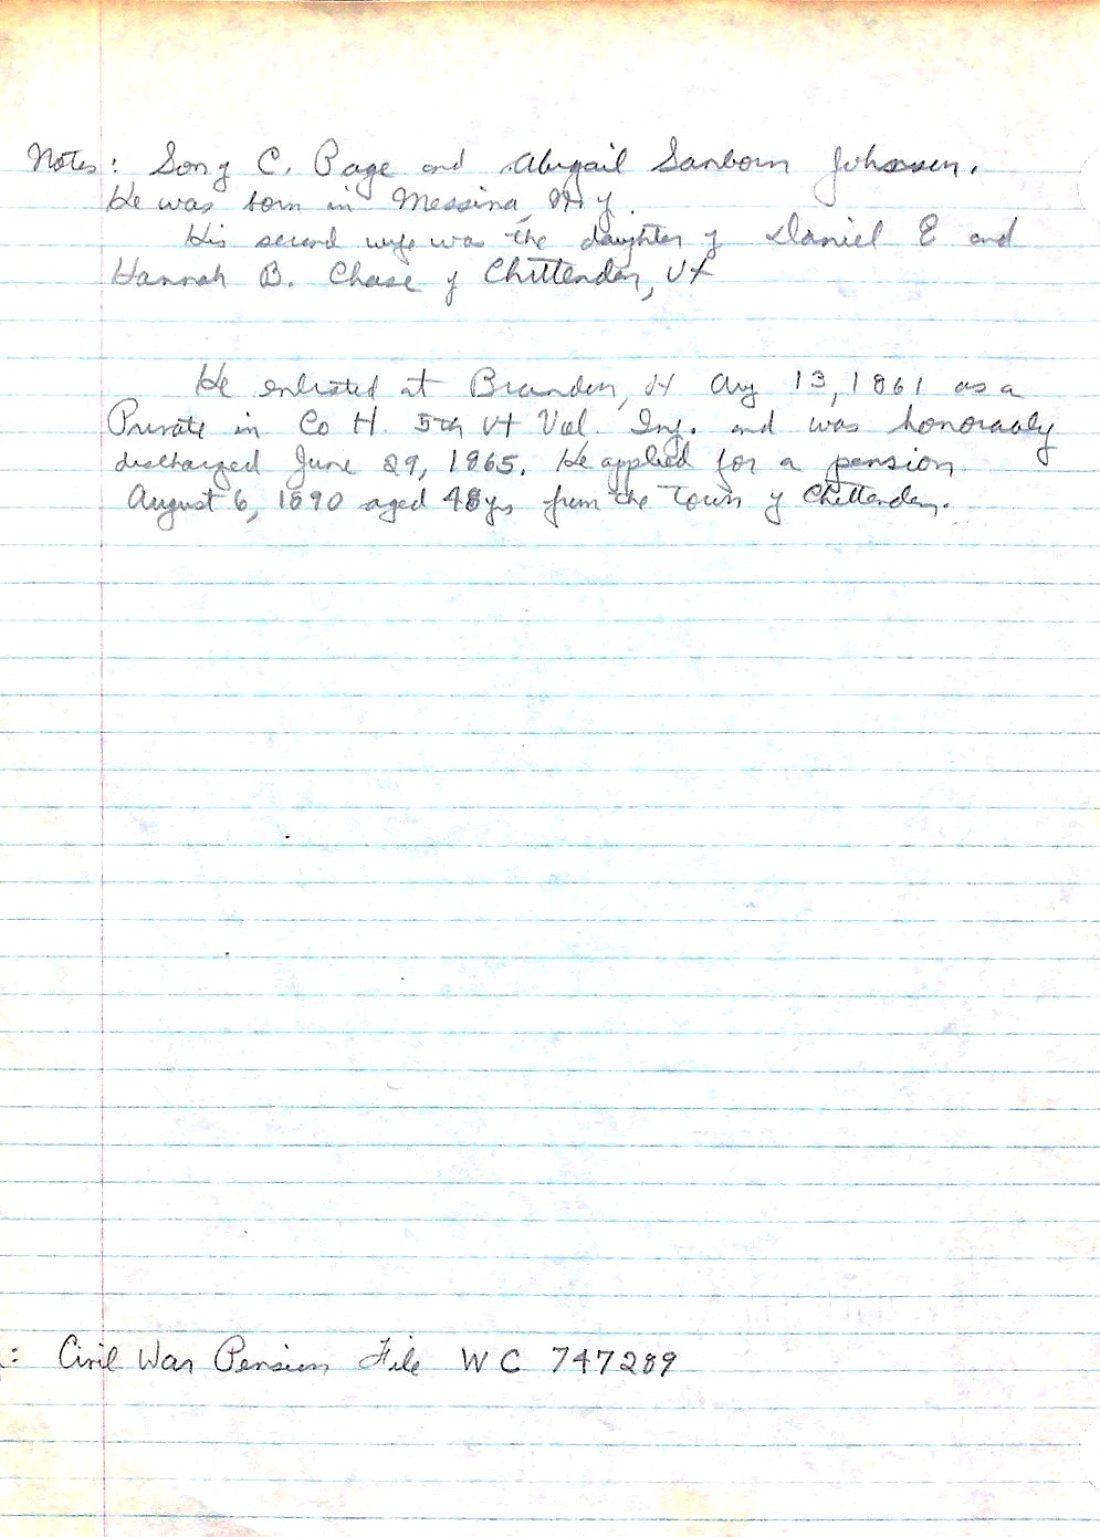 Notes: Son of C. Page and Abigail Sanborn Johnson.
He was born in Messina, N.Y.
His second wife was the daughter of Daniel E and
Hannah B. Chase of Chittenden, Vt
He enlisted at Brandon, Vt Aug 13, 1861 as a
Private in Co H. 5th Vt Vol. Inf. and was honorably
discharged June 29, 1865. He applied for a pension
August 6, 1890 aged 48 yrs from the Town of Chittenden.
: Civil War Pension File WC 747289